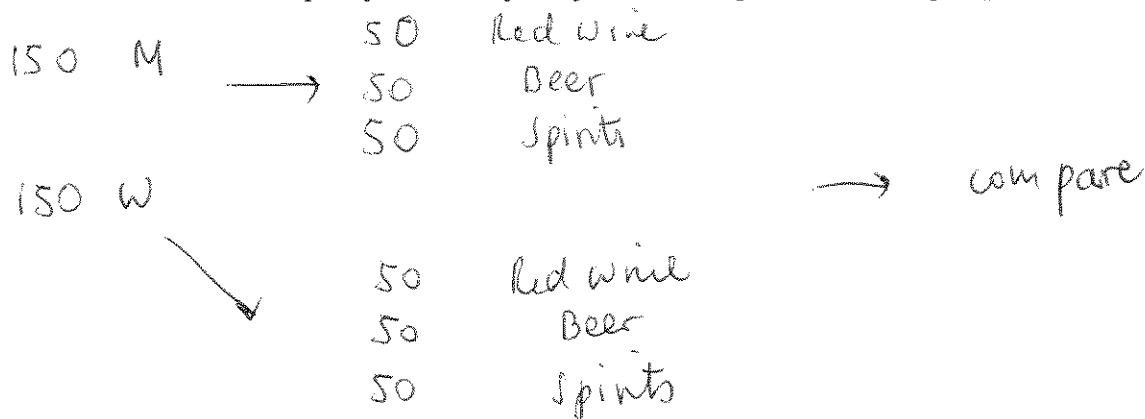 50 Red wine
150 M → 50 Beer
50 Spirits
150 W → compare
50 Red wine
50 Beer
50 Spirits